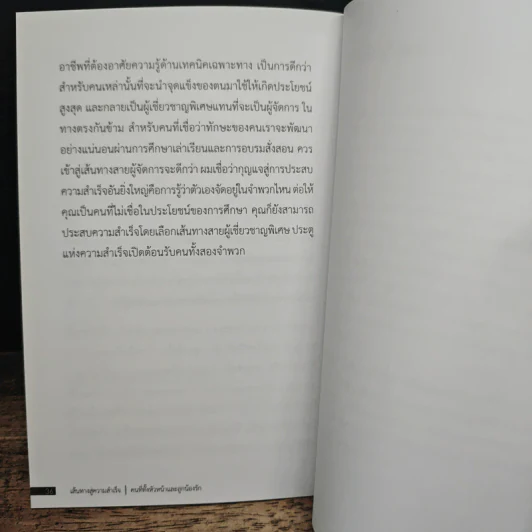 อาชีพที่ต้องอาศัยความรู้ด้านเทคนิคเฉพาะทาง เป็นการดีกว่า
สำหรับคนเหล่านั้นที่จะนำจุดแข็งของตนมาใช้ให้เกิดประโยชน์
สูงสุด และกลายเป็นผู้เชี่ยวชาญพิเศษแทนที่จะเป็นผู้จัดการ ใน
ทางตรงกันข้าม สำหรับคนที่เชื่อว่าทักษะของคนเราจะพัฒนา
อย่างแน่นอนผ่านการศึกษาเล่าเรียนและการอบรมสั่งสอน ควร
เข้าสู่เส้นทางสายผู้จัดการจะดีกว่า ผมเชื่อว่ากุญแจสู่การประสบ
ความสำเร็จอันยิ่งใหญ่คือการรู้ว่าตัวเองจัดอยู่ในจำพวกไหน ต่อให้
คุณเป็นคนที่ไม่เชื่อในประโยชน์ของการศึกษา คุณก็ยังสามารถ
ประสบความสำเร็จโดยเลือกเส้นทางสายผู้เชี่ยวชาญพิเศษ ประตู
แห่งความสำเร็จเปิดต้อนรับคนทั้งสองจำพวก
เส้นทางสู่ความสำเร็จ | คนที่ทั้งหัวหน้าและลูกน้องรัก